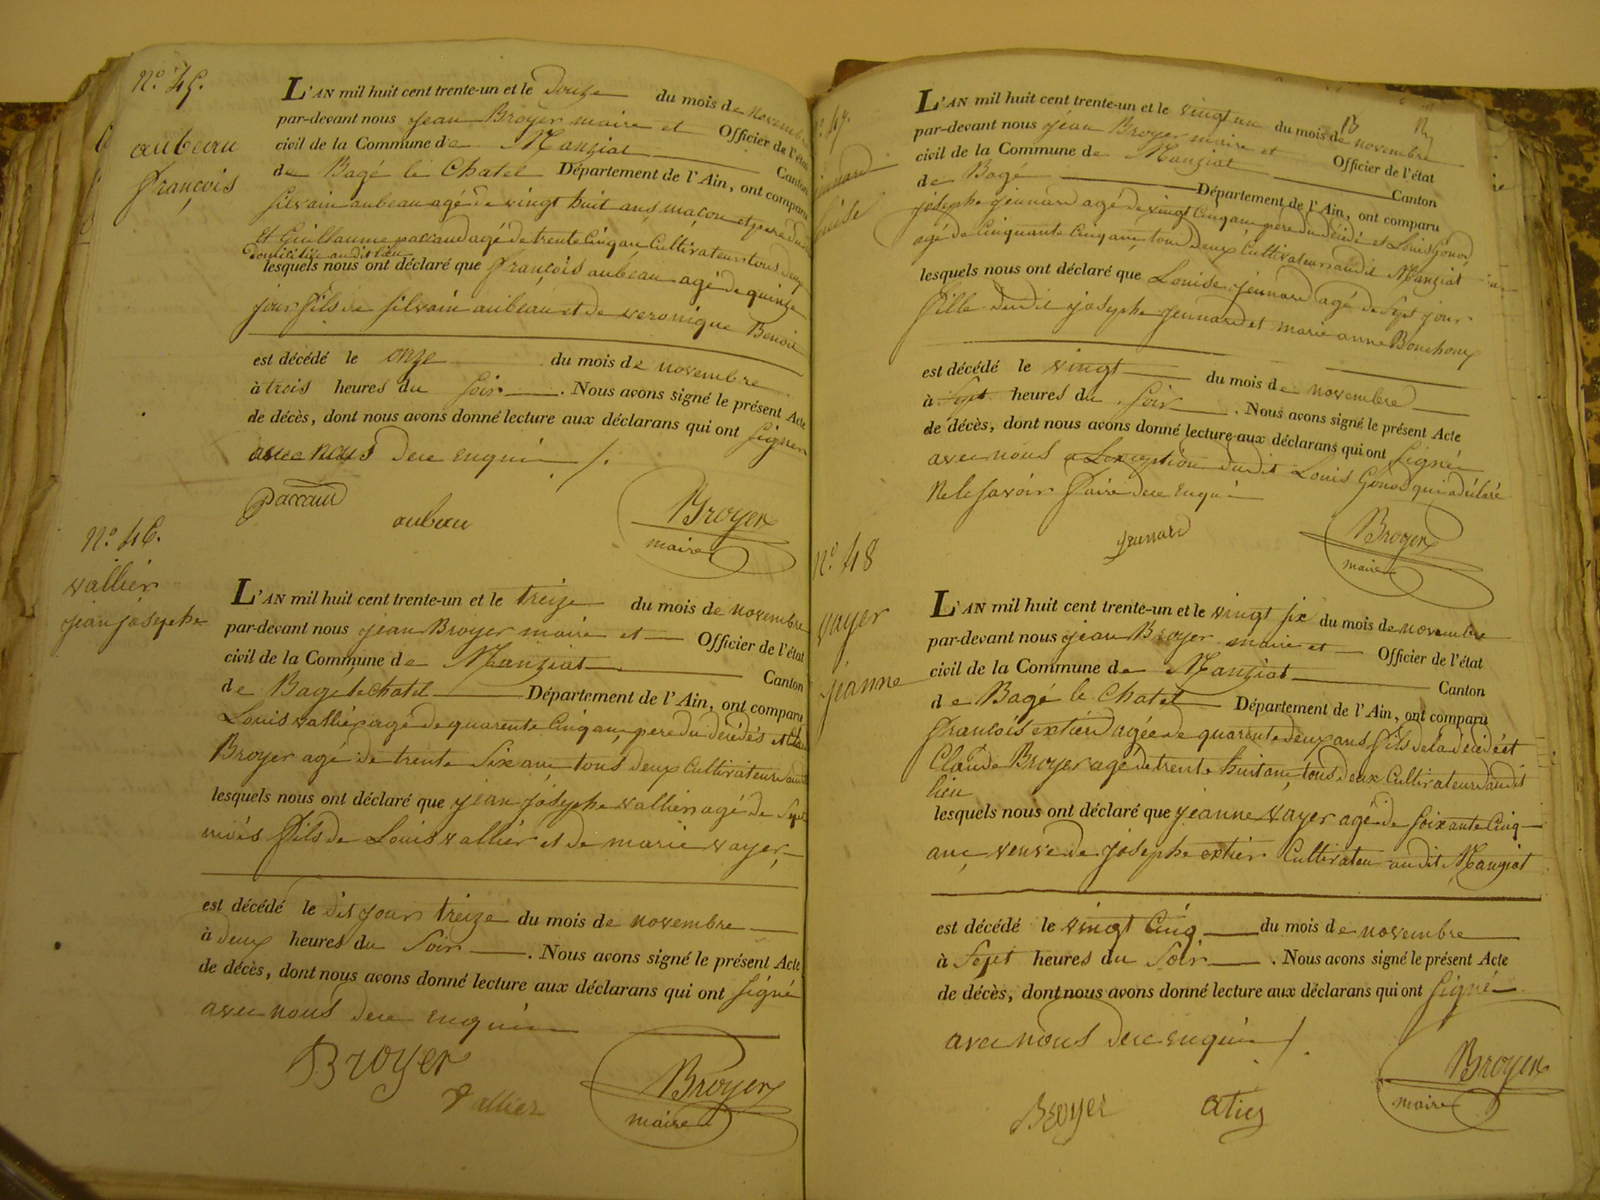 N.º 45.
aubeau
françois
L'AN mil huit cent trente-un et le Douze du mois de novembre
par-devant nous jean Broyer maire et Officier de l'état
civil de la Commune de Manziat Canton
de Bagé le Chatel Département de l'Ain, ont comparu
silvain aubeau agé de vingt huit ans maçon et pere du
et Guillaume paccaud agé de trente Cinq an Cultivateur tous deux
Domicilié au dit lieu
lesquels nous ont déclaré que françois aubeau agé de quinze
jour fils de silvain aubeau et de veronique Benoit
est décédé le onze du mois de novembre
à trois heures du soir. Nous avons signé le présent Acte
de décès, dont nous avons donné lecture aux déclarans qui ont signer
avec nous de ce enquis
paccaud
aubeau
Broyer
maire
N.º 46.
vallier
jean josephe
L'AN mil huit cent trente-un et le treize du mois de novembre
par-devant nous jean Broyer maire et Officier de l'état
civil de la Commune de Manziat Canton
de Bagé le chatel Département de l'Ain, ont comparu
Louis vallier agé de quarente Cinq an pere du décédés et
Broyer agé de trente six ans tous deux Cultivateur
lesquels nous ont déclaré que jean josephe vallier agé de sept
mois fils de Louis vallier et de marie vayer
est décédé le dit jour treize du mois de novembre
à deux heures du soir. Nous avons signé le présent Acte
de décès, dont nous avons donné lecture aux déclarans qui ont signé
avec nous de ce enquis
Broyer
vallier
Broyer
maire
47.
L'AN mil huit cent trente-un et le vingt un du mois de novembre
par-devant nous jean Broyer maire et Officier de l'état
civil de la Commune de Manziat Canton
de Bagé Département de l'Ain, ont comparu
josephe jeunard agé de vingt Cinq an pere du décédé et Louis Gonod
agé de Cinquante Cinq an tous Deux Cultivateur au dit Manziat
lesquels nous ont déclaré que Louise jeunard agé de sept jour
fille du dit josephe jeunard et marie anne Bouchoux
est décédé le vingt du mois de novembre
à sept heures du soir. Nous avons signé le présent Acte
de décès, dont nous avons donné lecture aux déclarans qui ont signé
avec nous a Lexception du dit Louis Gonod qui a déclaré
ne le savoir faire de ce enquis
jeunard
Broyer
maire
N.º 48
vayer
jeanne
L'AN mil huit cent trente-un et le vingt six du mois de novembre
par-devant nous jean Broyer maire et Officier de l'état
civil de la Commune de Manziat Canton
de Bagé le Chatel Département de l'Ain, ont comparu
francois extier agée de quarente deux ans fils de la décédé et
Claude Broyer agé de trente huit an tous deux Cultivateur au dit
lieu
lesquels nous ont déclaré que jeanne vayer agé de soixante Cinq
an veuve de josephe extier Cultivateu au dit Manziat
est décédé le vingt Cinq du mois de novembre
à sept heures du soir. Nous avons signé le présent Acte
de décès, dont nous avons donné lecture aux déclarans qui ont signé
avec nous de ce enquis
Broyer
Broyer
maire